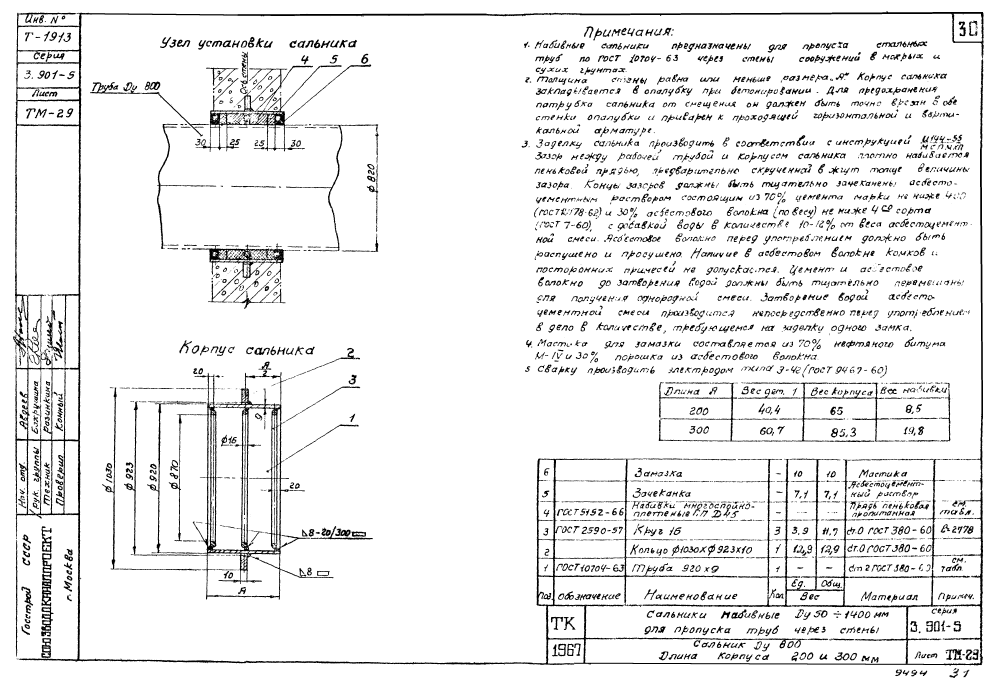 Инв. N°
Т-1913
Серия
3.901-5
Лист
ТМ-29
Нач. отд. Авдеев
Рук. группы Бахрушина
Техник Розинкина
Проверил Конный
Госстрой СССР
СОЮЗВОДОКАНАЛПРОЕКТ
г. Москва
Узел установки сальника
4 5 6
Ось стены
Труба Ду 800
30 25 25 30
ф820
Корпус сальника
2
3
1
20
А
2
9
ф1030
ф923
ф920
ф870
ф16
20
⊿8-20/300
⊿8
10
А
30
Примечания:
1. Набивные сальники предназначены для пропуска стальных
труб по ГОСТ 10704-63 через стены сооружений в мокрых и
сухих грунтах.
2. Толщина стены равна или меньше размера „А" Корпус сальника
закладывается в опалубку при бетонировании. Для предохранения
патрубка сальника от смещения он должен быть точно врезан в обе
стенки опалубки и приварен к проходящей горизонтальной и верти-
кальной арматуре.
3. Заделку сальника производить в соответствии с инструкцией И144-55
МСПМХП
Зазор между рабочей трубой и корпусом сальника плотно набивается
пеньковой прядью, предварительно скрученной в жгут толще величины
зазора. Концы зазоров должны быть тщательно зачеканены асбесто-
цементным раствором состоящим из 70% цемента марки не ниже 400
(ГОСТ 10178-62) и 30% асбестового волокна (по весу) не ниже 4 го сорта
(ГОСТ 7-60), с добавкой воды в количестве 10-12% от веса асбестоцемент-
ной смеси. Асбестовое волокно перед употреблением должно быть
распушено и просушено. Наличие в асбестовом волокне комков и
посторонних примесей не допускается. Цемент и асбестовое
волокно до затворения водой должны быть тщательно перемешаны
для получения однородной смеси. Затворение водой асбесто-
цементной смеси производится непосредственно перед употреблением
в дело в количестве, требующемся на заделку одного замка.
4. Мастика для замазки составляется из 70% нефтяного битума
М-IV и 30% порошка из асбестового волокна.
5 Сварку производить электродом типа Э-42 (ГОСТ 9467-60)
Длина А Вес дет. 1 Вес корпуса Вес набивки
200 40,4 65 8,5
300 60,7 85,3 19,8
6 Замазка – 10 10 Мастика
5 Зачеканка – 7,1 7,1 Асбестоцемент-
ный раствор
4 ГОСТ 5152-66 Набивки многослойно-
плетеные – Прядь пеньковая
пропитанная см.
табл.
3 ГОСТ 2590-57 Круг 16 3 3,9 11,7 ст.0 ГОСТ 380-60 ℓ=2778
2 Кольцо ф1030хф923х10 1 12,9 12,9 ст.0 ГОСТ 380-60
1 ГОСТ 10704-63 Труба 920х9 1 – – ст 2 ГОСТ 380-60 см.
табл
Поз. Обозначение Наименование Кол. Ед. Общ.
Вес Материал Примеч.
ТК
1967
Сальники набивные Ду 50 ÷ 1400 мм
для пропуска труб через стены
Сальник Ду 800
Длина корпуса 200 и 300 мм
серия
3.901-5
Лист ТМ-29
9494 31